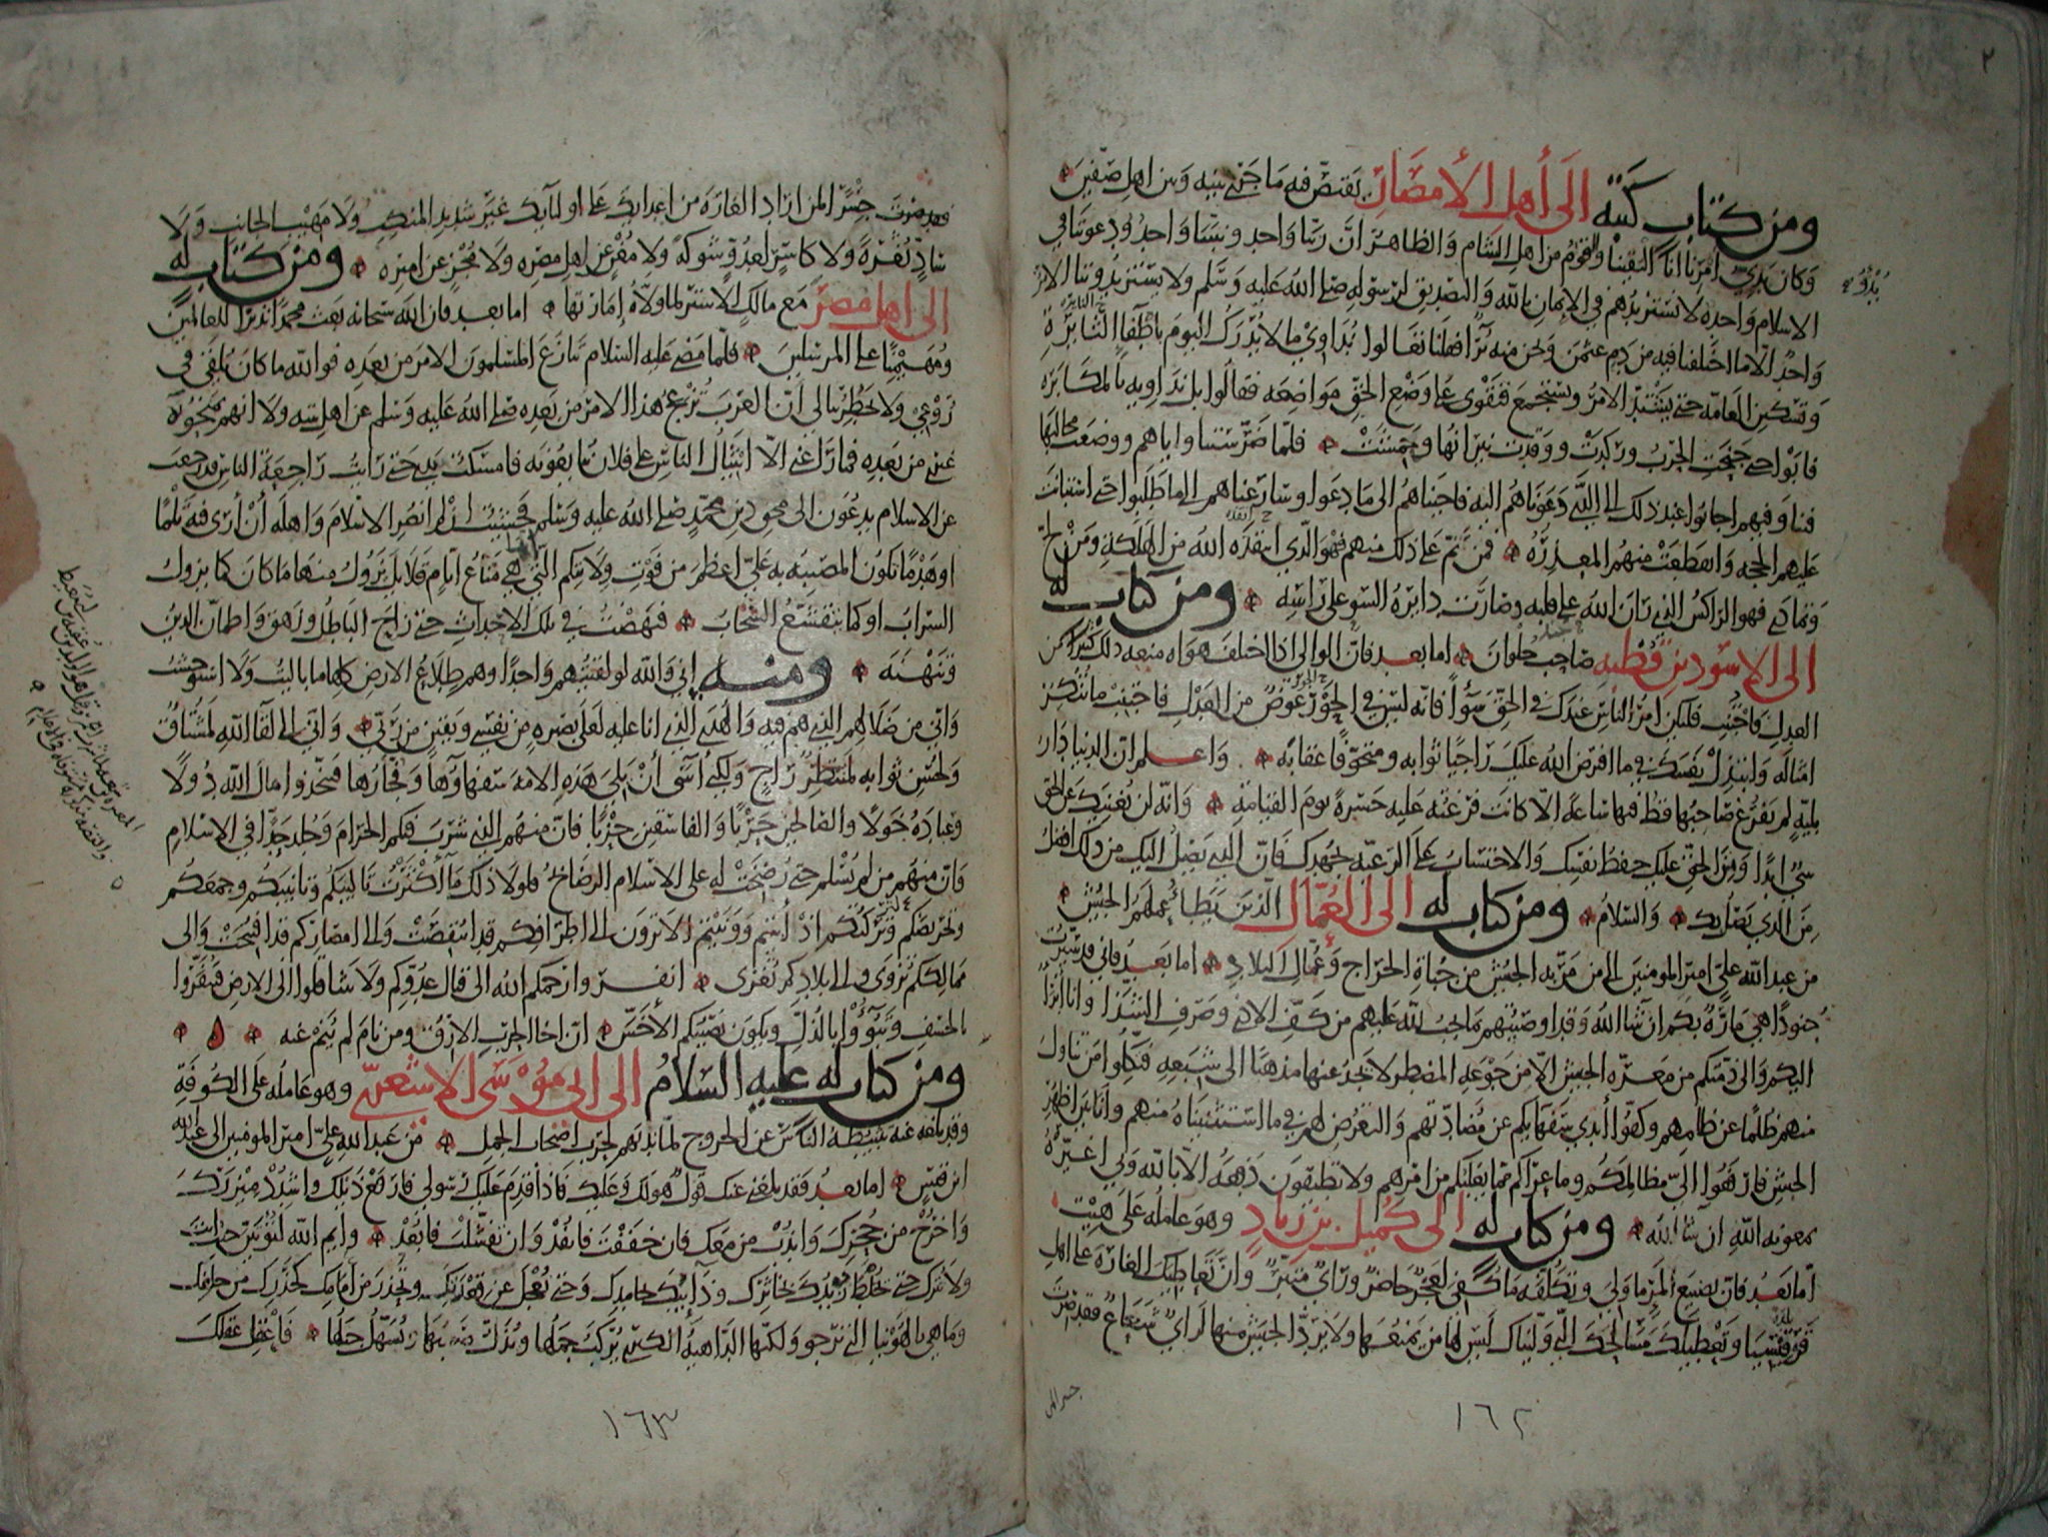 ومن كتاب كتبه الى أهل الأمصار يقتص فيه ما جرى بينه وبين اهل صفين
وكان بدئ امرنا انا التقينا والقوم من اهل الشام والظاهر ان ربنا واحد ونبينا واحد ودعوتنا في
بدؤ
الاسلام واحدة لا نستزيدهم في الايمان بالله والتصديق لرسوله صلى الله عليه وسلم ولا يستزيدوننا الامر
واحد الا ما اختلفنا فيه من دم عثمن ونحن منه برآ فقلنا تعالوا نداوي ما لا يدرك اليوم باطفا النائرة
وتسكين العامه حتى يشتد الامر ويستجمع فنقوى على وضع الحق مواضعه فقالوا بل نداويه بالمكابره
فابوا حتى جنحت الحرب وركدت ووقدت نيرانها وحمشت فلما ضرستنا واياهم ووضعت مخالبها
فينا وفيهم اجابوا عند ذلك الى الذي دعوناهم اليه فاجبناهم الى ما دعوا وسارعناهم الى ما طلبوا حتى استبانت
عليهم الحجه وانقطعت منهم المعذره فمن تم على ذلك منهم فهو الذي انقذه الله من الهلكه ومن لج
وتمادى فهو الراكس الذي ران الله على قلبه وصارت دايره السو على راسه ومن كتاب له
الى الاسود بن قطبه صاحب حلوان اما بعد فان الوالي اذا اختلف هواه منعه ذلك كثيرا من
العدل فليكن امر الناس عندك في الحق سوآ فانه ليس في الجور عوض من العدل فاجتنب ما تنكر
امثاله وابتذل نفسك فيما افترض الله عليك راجيا ثوابه ومتخوفا عقابه واعلم ان الدنيا دار
بليه لم يفرغ صاحبها قط فيها ساعة الا كانت فرغته عليه حسرة يوم القيامه وانه لن يغنيك عن الحق
شئ ابدا ومن الحق عليك حفظ نفسك والاحتساب على الرعيه بجهدك فان الذي يصل اليك من ذلك افضل
من الذي يصل بك والسلام ومن كتاب له الى العمال الذين يطأ عملهم الجيش
من عبد الله علي امير المومنين الى من مر به الجيش من جباة الخراج وعمال البلاد اما بعد فاني قد سيرت
جنودا هي مارة بكم ان شا الله وقد اوصيتهم بما يجب لله عليهم من كف الاذى وصرف الشذا وانا ابرأ
اليكم والى ذمتكم من معرة الجيش الا من جوعة المضطر لا يجد عنها مذهبا الى شبعه فنكلوا من تناول
منهم ظلما عن ظلمهم وكفوا أيدي سفهايكم عن مضادتهم والتعرض لهم فيما استثنيناه منهم وانا بين اظهر
الجيش فارفعوا الي مظالمكم وما عراكم مما يغلبكم من امرهم ولا تطيقون دفعه الا بالله وبي اغيره
بمعونه الله ان شا الله ومن كتاب له الى كميل بن زياد وهو عامله على هيت
اما بعد فان تضييع المر ما ولي وتكلفه ما كفي لعجز حاضر وراي متبر وان تعاطيك الغارة على اهل
قرقيسيا وتعطيلك مسالحك التي وليناك ليس لها من يمنعها ولا يرد الجيش منها لراي شعاع فقد صرت
جسرا لمن
١٦٢
فقد صرت جسرا لمن اراد الغارة من اعدايك على اوليآيك غير شديد المنكب ولا مهيب الجانب ولا
ساد ثغرة ولا كاسر لعدو شوكة ولا مغن عن اهل مصره ولا مجز عن اميره ومن كتاب له
الى اهل مصر مع مالك الاشتر لما ولاه إمارتها اما بعد فان الله سبحانه بعث محمدا نذيرا للعالمين
ومهيمنا على المرسلين فلما مضى عليه السلام تنازع المسلمون الامر من بعده فوالله ما كان يلقى في
روعي ولا يخطر ببالي ان العرب تزعج هذا الامر من بعده صلى الله عليه وسلم عن اهل بيته ولا انهم منحوه
عني من بعده فما راعني الا انثيال الناس على فلان يبايعونه فامسكت بيدي حتى رايت راجعة الناس قد رجعت
عن الاسلام يدعون الى محق دين محمد صلى الله عليه وسلم فخشيت ان لم انصر الاسلام واهله أن أرى فيه ثلما
او هدما تكون المصيبه به علي اعظم من فوت ولايتكم التي هي متاع ايام قلايل يزول منها ما كان كما يزول
السراب او كما يتقشع السحاب فنهضت في تلك الاحداث حتى زاح الباطل وزهق واطمان الدين
وتنهنه ومنه إني والله لو لقيتهم واحدا وهم طلاع الارض كلها ما باليت ولا استوحشت
واني من ضلالهم الذي هم فيه والهدى الذي انا عليه لعلى بصيره من نفسي ويقين من ربي واني الى لقآ الله لمشتاق
ولحسن ثوابه لمنتظر راج ولكني آسى أن يلي هذه الامه سفهاوها وفجارها فيتخذوا مال الله دولا
وعباده خولا والصالحين حربا والفاسقين حزبا فان منهم الذي شرب فيكم الحرام وجلد حدا في الاسلام
وان منهم من لم يسلم حتى رضخت له على الاسلام الرضايخ فلولا ذلك ما أكثرت تاليبكم وتانيبكم وجمعكم
وتحريضكم ولتركتكم اذ أبيتم وونيتم الا ترون الى اطرافكم قد انتقصت والى امصاركم قد افتتحت والى
ممالككم تزوى والى بلادكم تغزى انفروا رحمكم الله الى قتال عدوكم ولا تثاقلوا الى الارض فتقروا
بالخسف وتبوؤا بالذل ويكون نصيبكم الأخس ان اخا الحرب الارق ومن نام لم ينم عنه
ومن كتاب له عليه السلام الى ابي موسى الاشعري وهو عامله على الكوفة
وقد بلغه عنه تثبيطه الناس عن الخروج لما ندبهم لحرب اصحاب الجمل من عبد الله علي امير المومنين الى عبد الله
ابن قيس اما بعد فقد بلغني عنك قول هو لك وعليك فاذا قدم عليك رسولي فارفع ذيلك واشدد ميزرك
واخرج من جحرك واندب من معك فان حققت فانفذ وان تفشلت فابعد وايم الله لتوتين حيث انت
ولا تترك حتى يخلط زبدك بخاثرك وذآيبك بجامدك وحتى تعجل عن قعدتك وتحذر من أمامك كحذرك من خلفك
وما هي بالهوينا التي ترجو ولكنها الداهية الكبرى يركب جملها ويذل صعبها ويسهل جبلها فاعقل عقلك
١٦٣